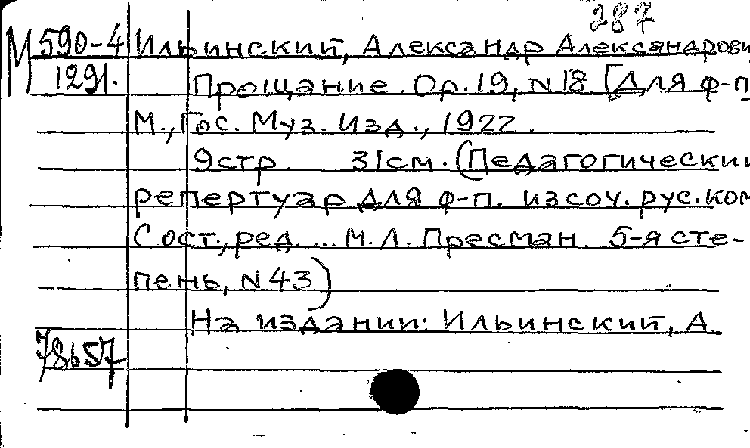 287
М 590-4 Ильинский, Александр Александрови
1291. Прощание. Ор.19, N18 [Для ф-п
М., Гос. Муз. Изд., 1922.
9стр. 31см. (Педагогический
репертуар для ф-п. из соч. рус. ком
Сост., ред. ... М.Л. Пресман. 5-я сте-
пень, N43)
На издании: Ильинский, А.
78657